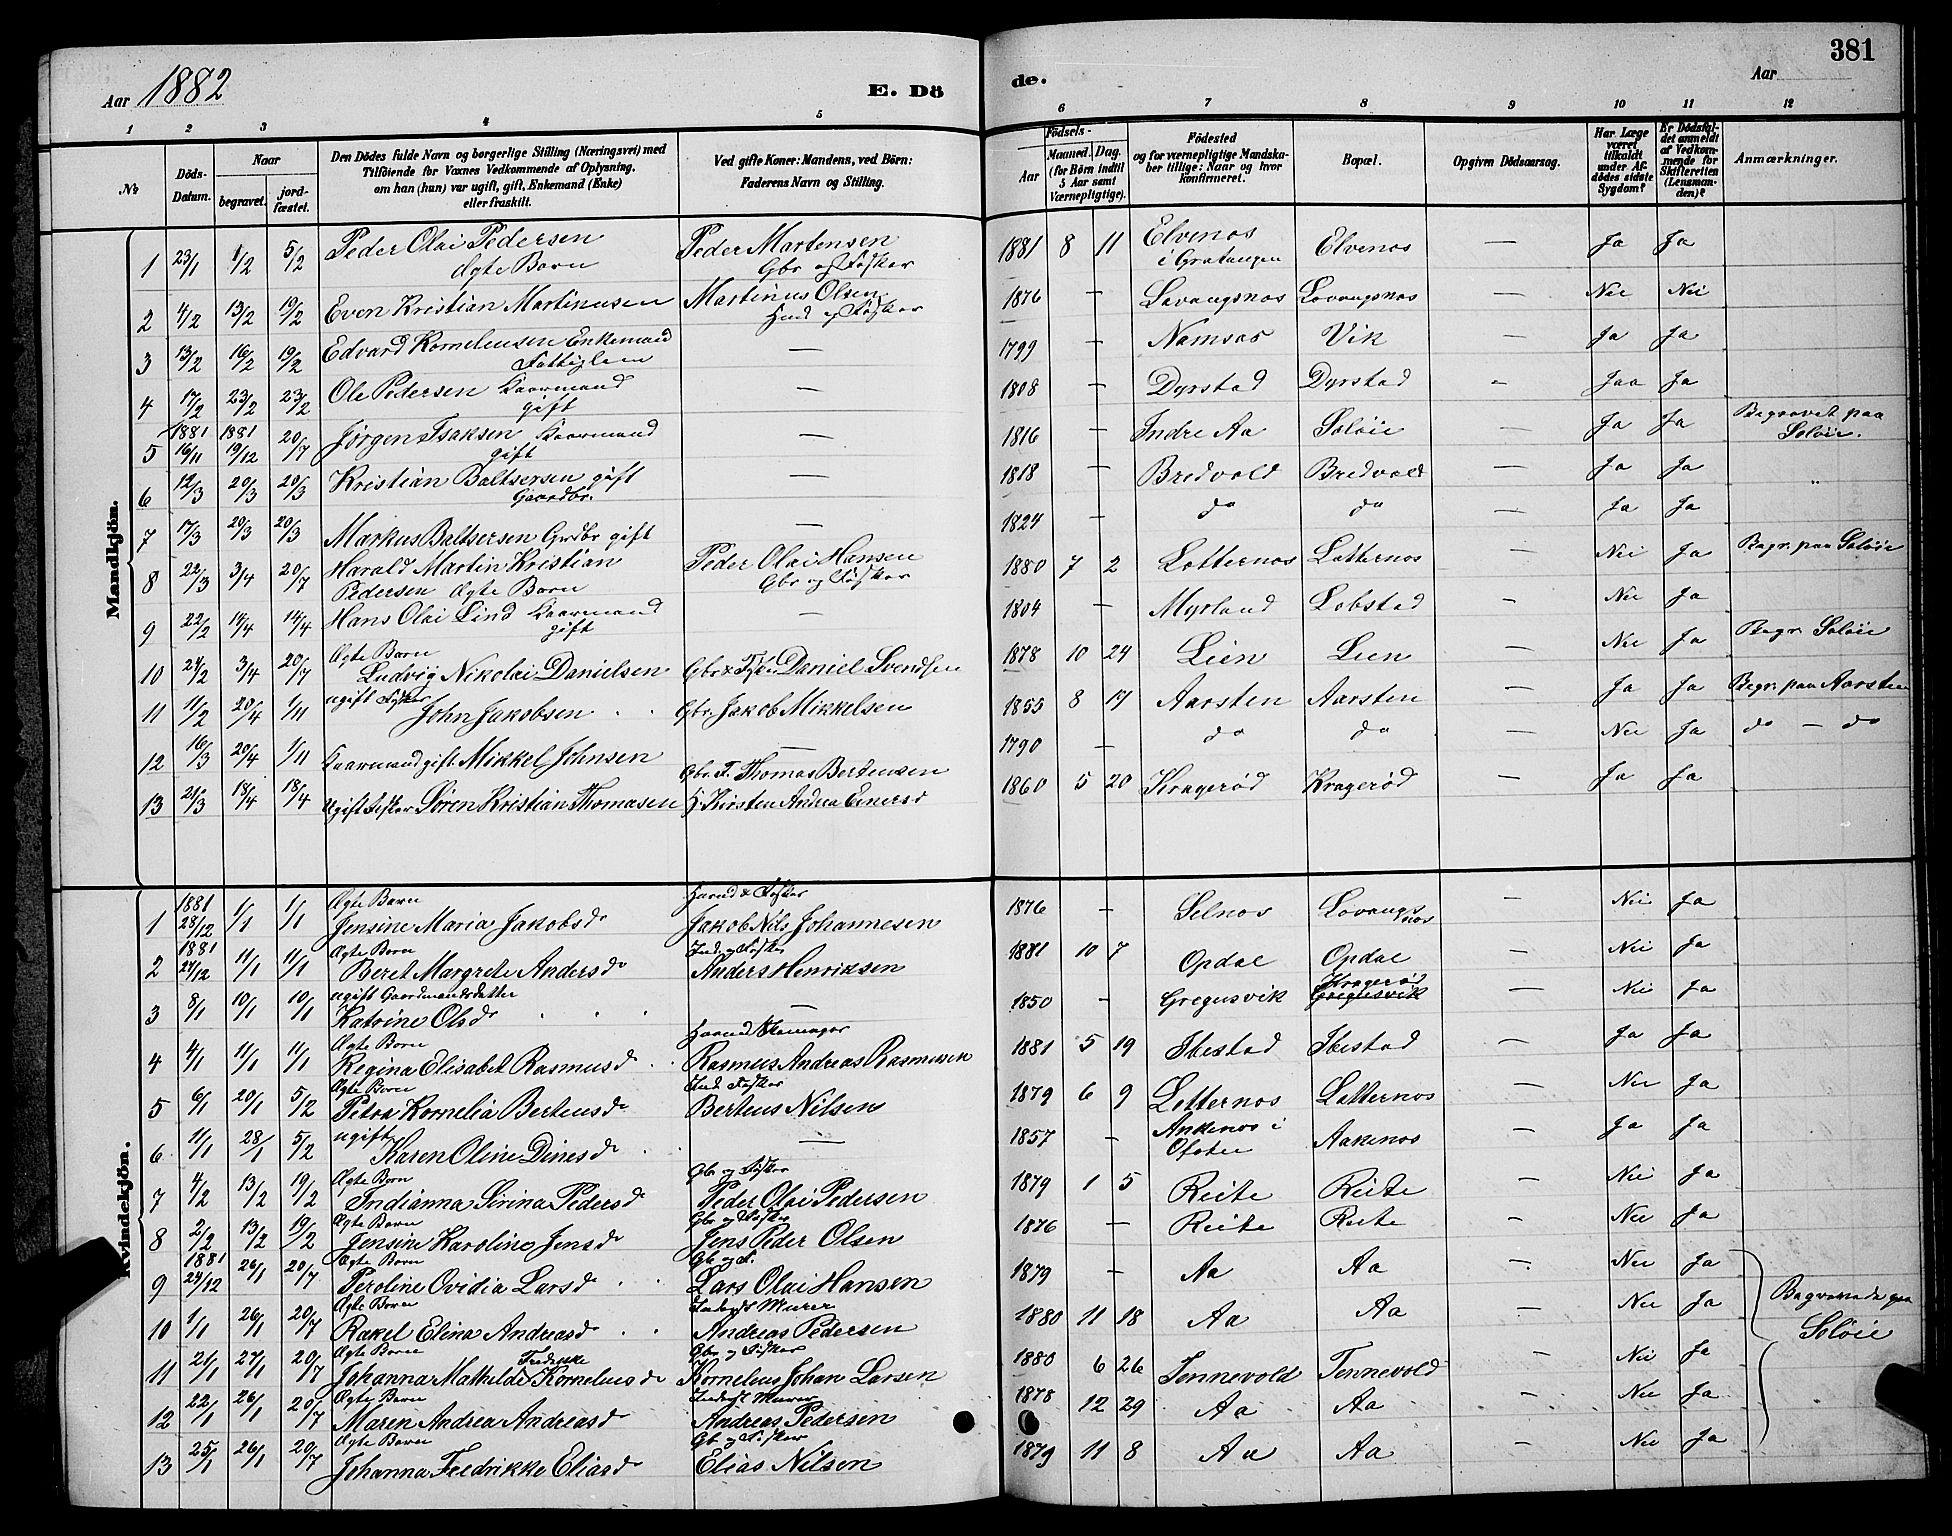 381
Aar 1882
E. Dö
de.
Aar
1 2 3 4 5 6 7 8 9 10 11 12
No
Döds-Datum.
Naar
begravet.
jord-fæstet.
Den Dödes fulde Navn og borgerlige Stilling (Næringsvei) med
Tilföiende for Voxnes Vedkommende af Oplysning,
om han (hun) var ugift, gift, Enkemand (Enke)
eller fraskilt.
Ved gifte Koner: Mandens, ved Börn:
Faderens Navn og Stilling.
Födsels-
Aar
Maaned. Dag.
(for Börn indtil 5 Aar samt Værnepligtige).
Födested
og for værnepligtige Mandska-
ber tillige: Naar og hvor
konfirmeret.
Bopæl.
Opgiven Dödsaarsag.
Har Læge været tilkaldt under Af-dödes sidste Sygdom?
Er Dödsfal-det anmeldt af Vedkom-mende for Skifteretten (Lensman-den)?
Anmærkninger.
Mandkjön.
1 23/1 1/2 5/2 Peder Olai Pedersen Ægte Barn Peder Martensen Gbr og Fisker 1881 8 11 Elvenos i Gratangen Elvenos — Ja Ja
2 4/2 13/2 19/2 Even Kristian Martinusen Martinus Olsen Hmd og Fisker 1876 — Lavangsnos Lavangsnos — Nei Nei
3 13/2 16/2 19/2 Edvard Kornelensen Enkemand Fattiglem — 1799 — Namsos Vik — Ja Ja
4 17/2 23/2 23/2 Ole Pedersen Kaarmand gift — 1808 — Dyrstad Dyrstad — Jaa Ja
5 1881 16/11 1881 19/12 20/7 Jørgen Isaksen Kaarmand gift — 1816 Indre Aa Soløie — Ja Ja Begravet paa Soløie.
6 12/3 20/3 20/3 Kristian Baltsersen gift Gaardbr. — 1818 — Bredvold Bredvold — Ja Ja
7 17/3 20/3 20/3 Markus Baltsersen Grdbr gift — 1824 — do do Ja Ja
8 22/3 3/4 20/7 Harald Martin Kristian Pedersen Ægte Barn Peder Olai Hansen Gbr og Fisker 1880 7 2 Lotternos Lotternos — Nei Ja Begr. paa Soløie
9 22/2 14/4 14/4 Hans Olai Lind Kaarmand gift — 1804 — Myrland Lobstad — Nei Ja
10 24/2 3/4 20/7 Ægte Barn Ludvig Nikolai Danielsen Gbr & Fisker Daniel Svendsen 1878 10 24 Lien Lien — Nei Ja Begr. Soløie
11 11/2 20/4 1/11 ugift Fisker John Jakobsen Gbr. Jakob Mikkelsen 1855 8 17 Aarsten Aarsten — Ja Ja Begr. paa Aarsten
12 16/3 20/4 1/11 Kaarmand gift Mikkel Johnsen — 1790 — do do Nei Ja do — do
13 21/3 18/4 18/4 Ugift Fisker Søren Kristian Thomasen Gbr. F. Thomas Bertensen H. Kirsten Andrea Einersd 1860 5 20 Kragerød Kragerød — Ja Ja
Kvindekjön.
1 1881 28/12 1/1 1/1 Ægte Barn Jensine Maria Jakobsdr Huusmd & Fisker Jakob Nils Johannesen 1876 — Selnos Lovangsnos — Nei Ja
2 1881 27/12 11/1 11/1 Ægte Barn Beret Margrete Andersdr Ind. og Fisker Anders Henriksen 1881 10 7 Opdal Opdal — Nei Ja
3 8/1 10/1 10/1 ugift Gaardmandsdatter Katrine Olsdr — 1850 — Gregusvik Kragerød Gregusvik — Nei Ja
4 4/1 11/1 11/1 Ægte Barn Regina Elisabet Rasmusdr Rasmus Andreas Rasmusen 1881 5 19 Ibestad Ibestad — Ja Ja
5 6/1 20/1 5/2 Ægte Barn Petra Kornelia Bertensdr Ind. Fisker Bertens Nilsen 1879 6 9 Lotternos Lotternos — Nei Ja
6 11/1 28/1 5/2 ugift Karen Oline Dinesdr — 1857 — Ankenos i Ofoten Aakenos — Ja Ja
7 4/2 13/2 19/2 Ægte Barn Indianna Sirina Pedersdr Gbr og Fisker Peder Olai Pedersen 1879 1 5 Reite Reite — Nei Ja
8 2/2 13/2 19/2 Ægte Barn Jensine Karoline Jensdr Gbr og Fisker Jens Peder Olsen 1876 — Reite Reite — Nei Ja
9 1881 24/12 26/1 20/7 Ægte Barn Peroline Ovidia Larsdr Gb og F. Lars Olai Hansen 1879 — Aa Aa — Nei Ja
10 1/1 26/1 20/7 Ægte Barn Rakel Elina Andreasdr Inderst Murer Andreas Pedersen 1880 11 18 Aa Aa — Nei Ja Begravede paa Soløie
11 21/1 27/1 20/7 Ægte Barn Johanna Mathilde Fredrikke Korneliusdr Gbr og Fisker Kornelius Johan Larsen 1880 6 26 Tennevold Tennevold — Nei Ja
12 22/1 26/1 20/7 Ægte Barn Maren Andrea Andreasdr Inderst Murer Andreas Pedersen 1878 12 29 Aa Aa — Nei Ja
13 25/1 26/1 20/7 Ægte Barn Johanna Fredrikke Eliasdr Gb og Fisker Elias Nilsen 1879 11 8 Aa Aa — Nei Ja